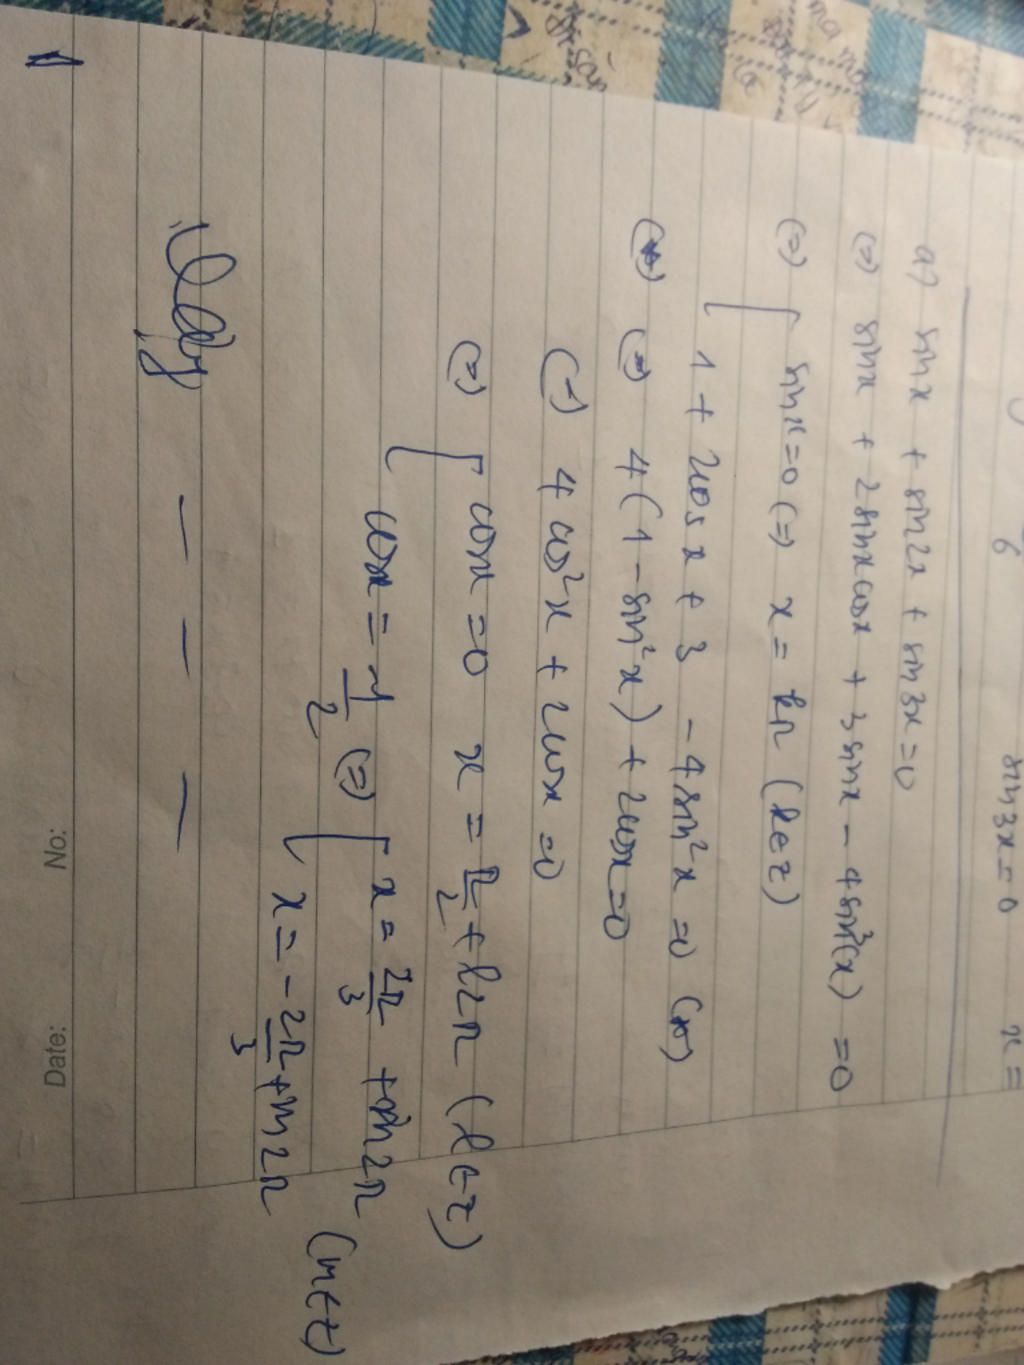 sin3x = 0 x =
6
a) sinx + sin2x + sin3x = 0
(=) sinx + 2sinxcosx + 3sinx - 4sin³(x) = 0
(=) [ sinx = 0 (=) x = kπ (k∈z)
1 + 2cosx + 3 - 4sin²x = 0 (*)
(*) (=) 4(1 - sin²x) + 2cosx = 0
(=) 4cos²x + 2cosx = 0
(=) [ cosx = 0 x = π/2 + l2π (l∈z)
cosx = -1/2 (=) [ x = 2π/3 + m2π
x = -2π/3 + m2π (m∈z)
Vậy - - -
No: Date: